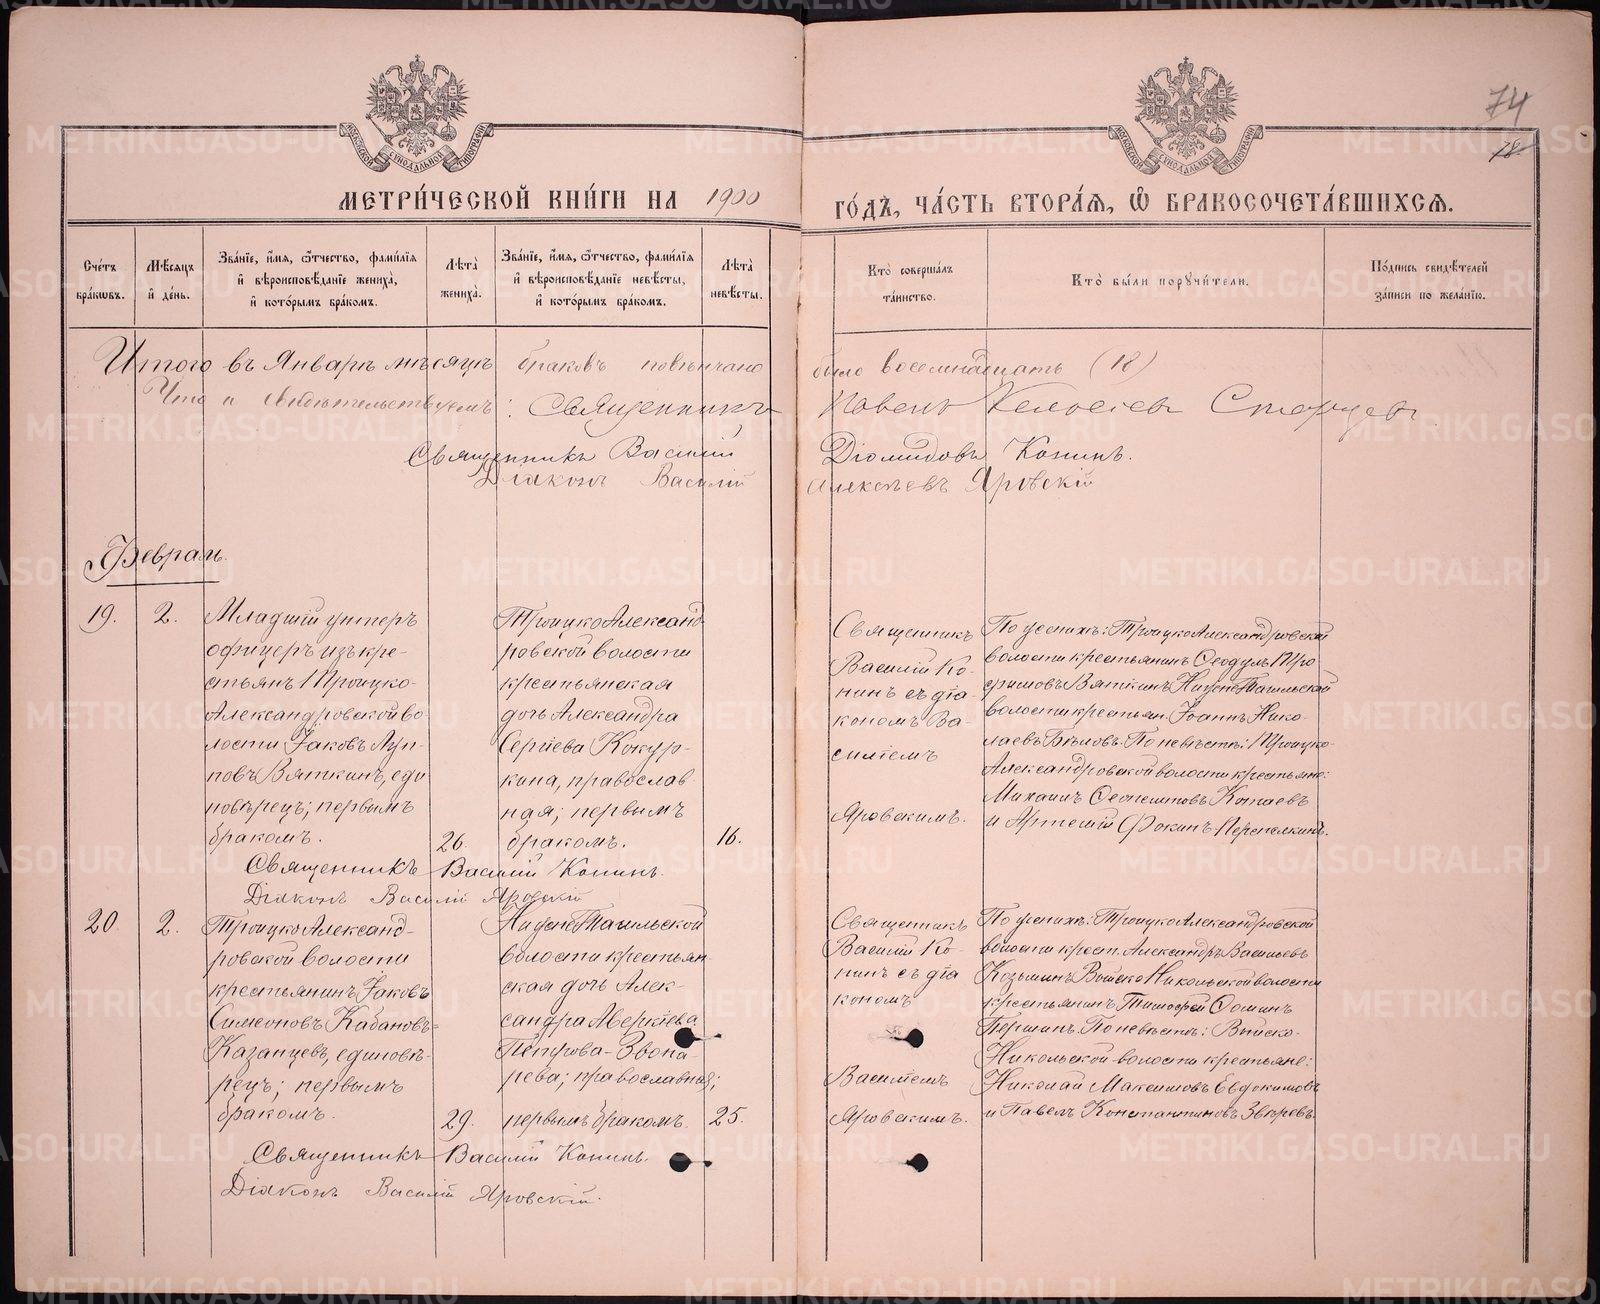 74
18
МЕТРИЧЕСКОЙ КНИГИ НА 1900 ГОДЪ, ЧАСТЬ ВТОРАЯ, Ѡ БРАКОСОЧЕТАВШИХСЯ.
Счетъ браковъ.
Мѣсяцъ и день.
Званіе, имя, ѿчество, фамилія и вѣроисповѣданіе жениха, и которымъ бракомъ.
Лѣта жениха.
Званіе, имя, ѿчество, фамилія и вѣроисповѣданіе невѣсты, и которымъ бракомъ.
Лѣта невѣсты.
Кто совершалъ таинство.
Кто были поручители.
Подпись свидѣтелей записи по желанію.
Итого въ Январѣ мѣсяцѣ браковъ повѣнчано было восемнадцать (18)
Что и свидѣтельствуемъ: Священникъ Старцевъ
Священникъ Василій Діомидовъ Конинъ.
Діаконъ Василій Алексѣевъ Яровскій
Февраль.
19.
2.
Младшій унтеръ
офицеръ изъ кре-
стьянъ Троицко-
Александровской во
лости Іаковъ Луп-
повъ Вяткинъ, еди
новѣрецъ; первымъ
бракомъ.
26.
Троицко Александ
ровской волости
крестьянская
дочь Александра
Сергіева Кокур-
кина, православ
ная; первымъ
бракомъ.
16.
Священникъ
Василій Ко-
нинъ съ діа
кономъ Ва-
силіемъ
Яровскимъ.
По женихѣ: Троицко Александровской
волости крестьянинъ Ѳеодулъ Тро
фимовъ Вяткинъ, Нижне Тагильской
волости крестьян. Іоаннъ Нико-
лаевъ Бѣловъ. По невѣстѣ: Троицко-
Александровской волости крестьяне:
Михаилъ Копаевъ
и Артемій Фокинъ Перепелкинъ.
Священникъ Василій Конинъ.
Діаконъ Василій Яровскій
20.
2.
Троицко Александ-
ровской волости
крестьянинъ Іаковъ
Симеоновъ Кабановъ-
Казанцевъ, единовѣ-
рецъ; первымъ
бракомъ.
29.
Нижне Тагильской
волости крестьян
ская дочь Алек-
сандра Аверкіева
Пѣтухова-Звона-
рева; православная;
первымъ бракомъ.
25.
Священникъ
Василій Ко-
нинъ съ діа
кономъ
Василіемъ
Яровскимъ.
По женихѣ: Троицко Александровской
волости крест. Александръ Васильевъ
Козьминъ, Выйско Никольской волости
крестьянинъ Тимофей Ѳоминъ
Першинъ. По невѣстѣ: Выйско-
Никольской волости крестьяне:
Николай Максимовъ Евдокимовъ
и Павелъ Константиновъ Звѣревъ.
Священникъ Василій Конинъ.
Діаконъ Василій Яровскій.
METRIKI.GASO-URAL.RU